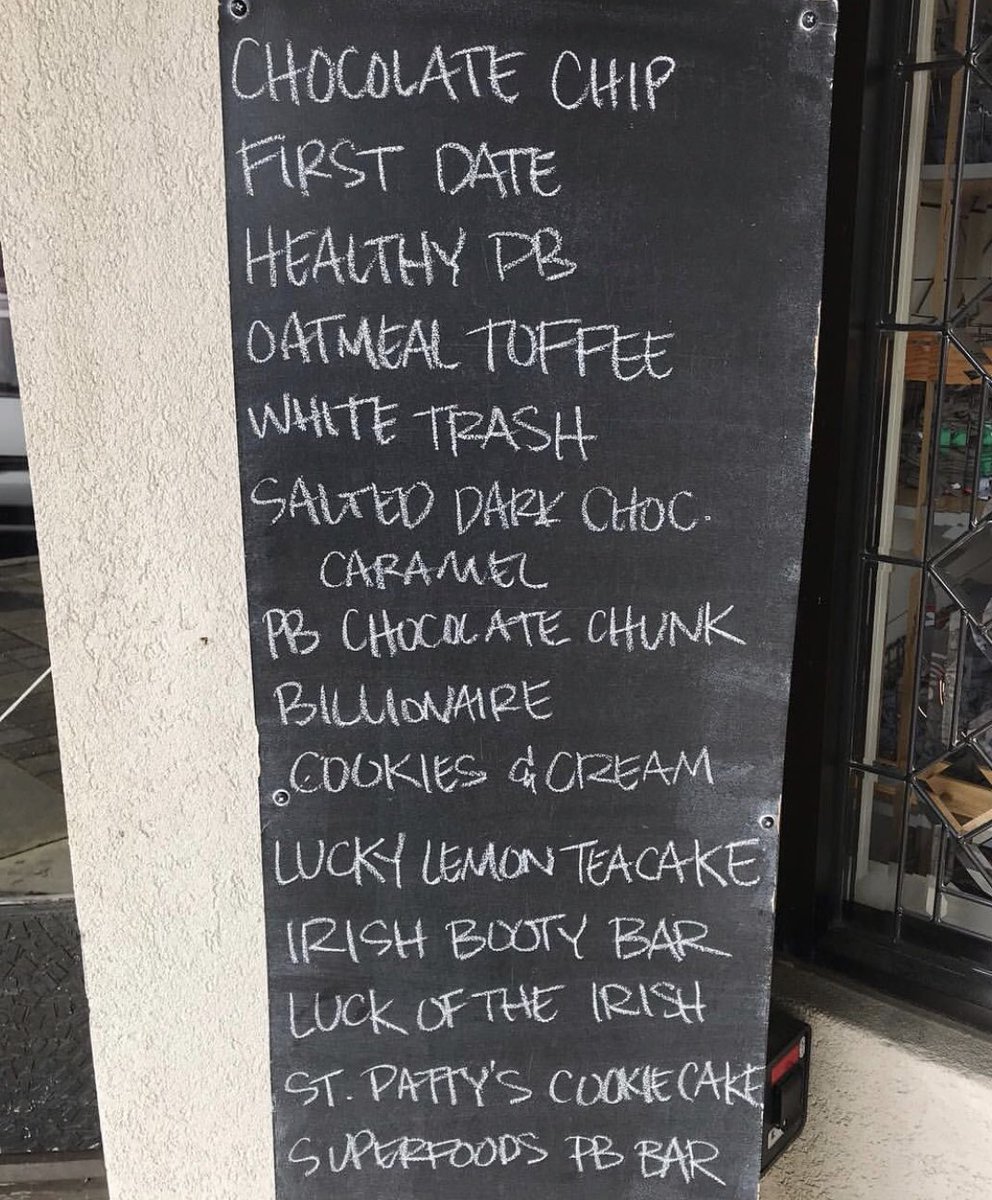 CHOCOLATE CHIP
FIRST DATE
HEALTHY PB
OATMEAL TOFFEE
WHITE TRASH
SALTED DARK CHOC.
CARAMEL
PB CHOCOLATE CHUNK
BILLIONAIRE
COOKIES & CREAM
LUCKY LEMON TEACAKE
IRISH BOOTY BAR
LUCK OF THE IRISH
ST. PATTY'S COOKIE CAKE
SUPERFOODS PB BAR